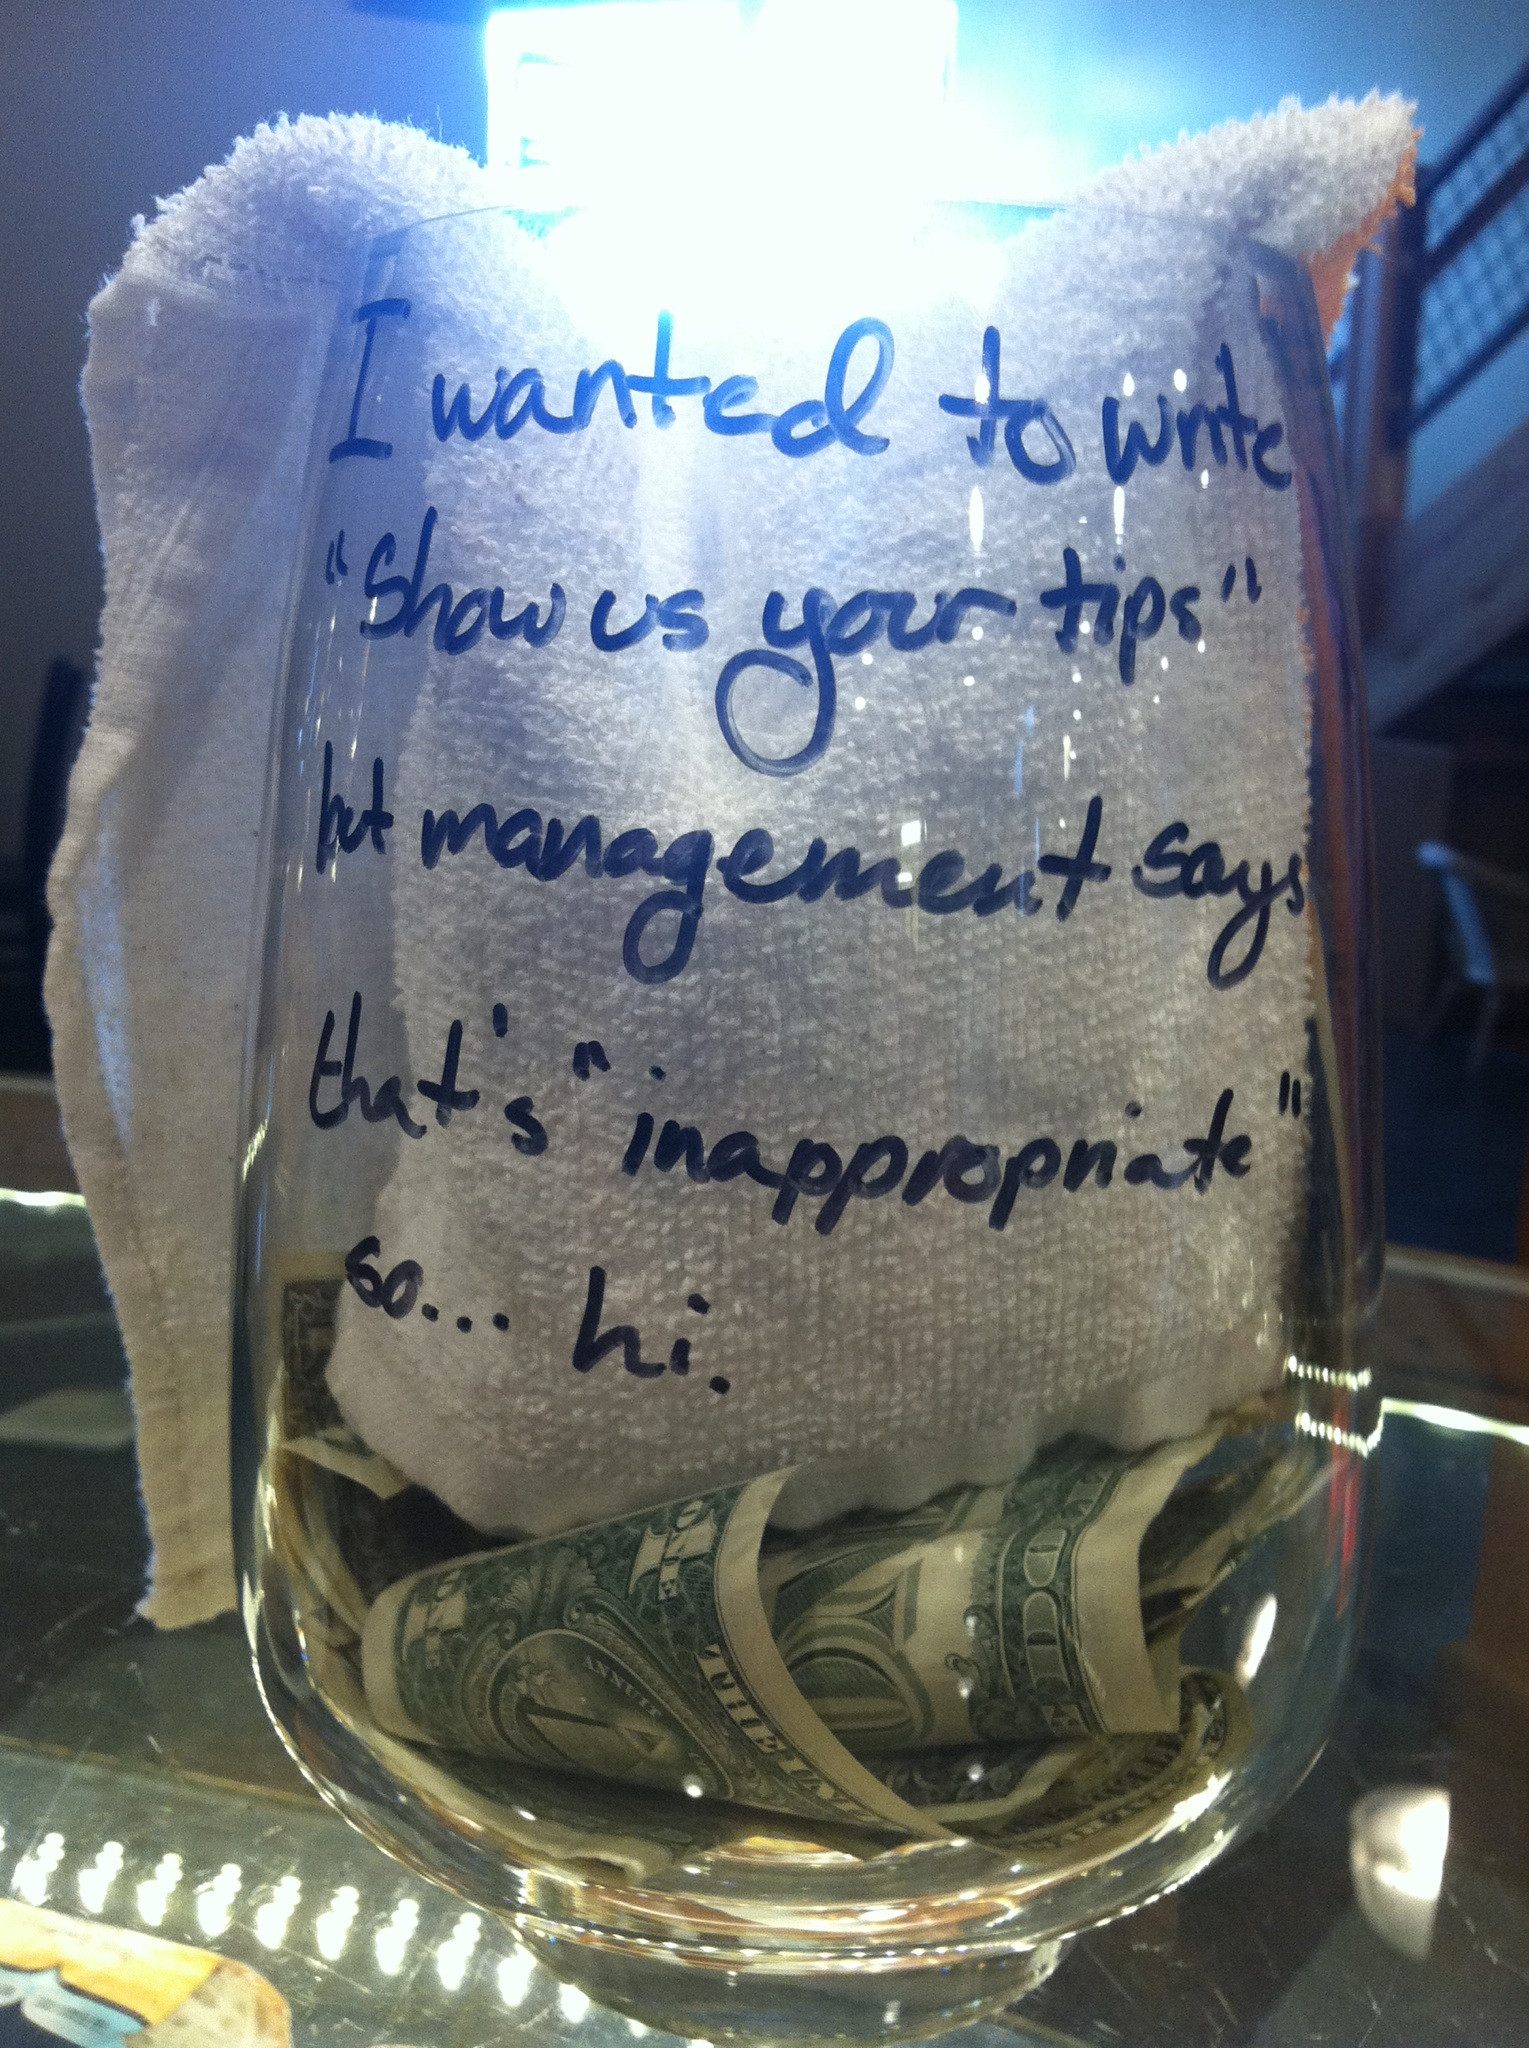 I wanted to write
"Show us your tips"
but management says
that's "inappropriate"
so... hi.
ANNUIT